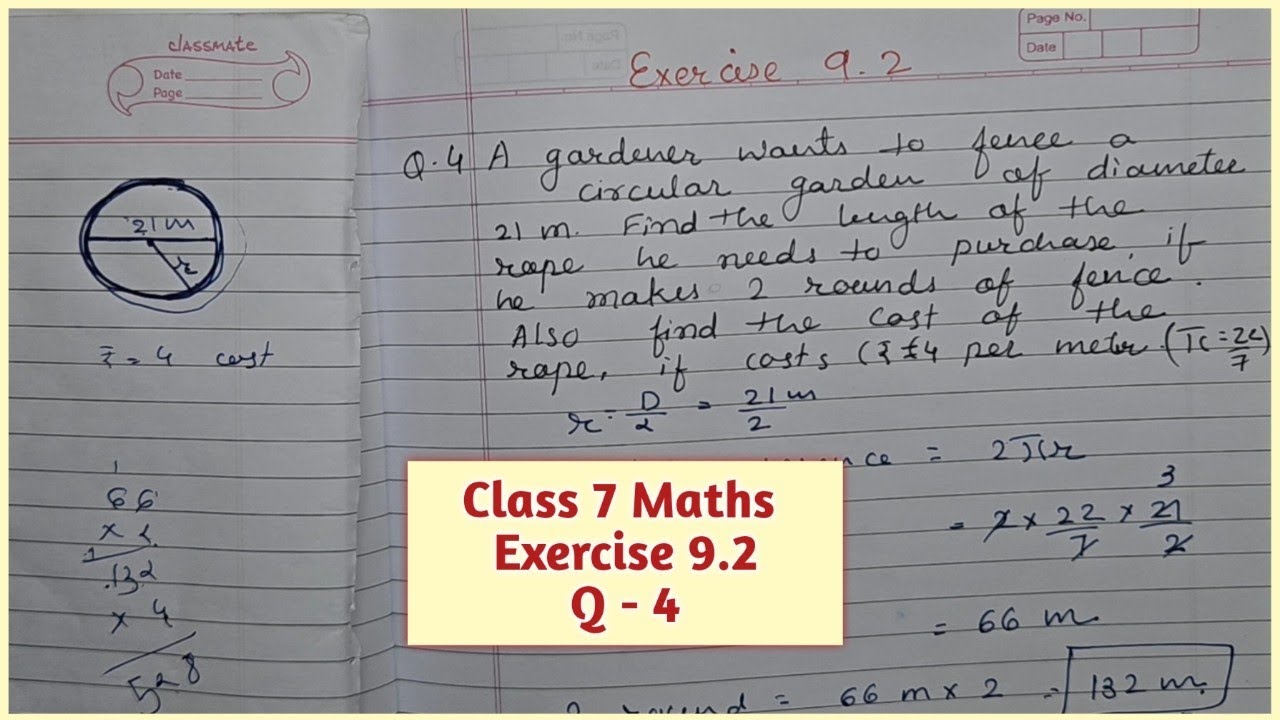 classmate
Date
Page
21 m
r
₹ = 4 cost
1
66
× 2
1
132
× 4
528
Page No.
Date
Exercise 9.2
Q.4 A gardener wants to fence a
circular garden of diameter
21 m. Find the length of the
rope he needs to purchase, if
he makes 2 rounds of fence.
Also find the cost of the
rope, if costs ₹ 4 per meter. (π = 22/7)
r = D/2 = 21/2 m
nce = 2πr
= 2 × 22/7 × 21/2
3
= 66 m
round = 66 m × 2 = 132 m.
Class 7 Maths
Exercise 9.2
Q - 4